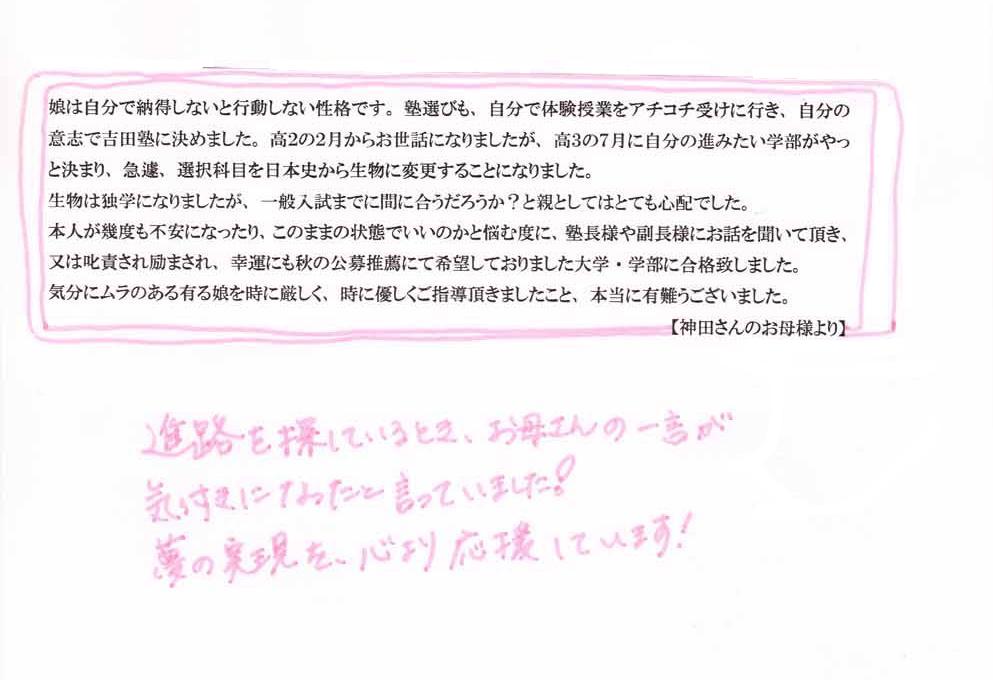 娘は自分で納得しないと行動しない性格です。塾選びも、自分で体験授業をアチコチ受けに行き、自分の
意志で吉田塾に決めました。高2の2月からお世話になりましたが、高3の7月に自分の進みたい学部がやっ
と決まり、急遽、選択科目を日本史から生物に変更することになりました。
生物は独学になりましたが、一般入試までに間に合うだろうか？と親としてはとても心配でした。
本人が幾度も不安になったり、このままの状態でいいのかと悩む度に、塾長様や副長様にお話を聞いて頂き、
又は叱責され励まされ、幸運にも秋の公募推薦にて希望しておりました大学・学部に合格致しました。
気分にムラのある有る娘を時に厳しく、時に優しくご指導頂きましたこと、本当に有難うございました。
【神田さんのお母様より】
進路を探しているとき、お母さんの一言が
気づきになったと言っていました!
夢の実現を、心より応援しています!